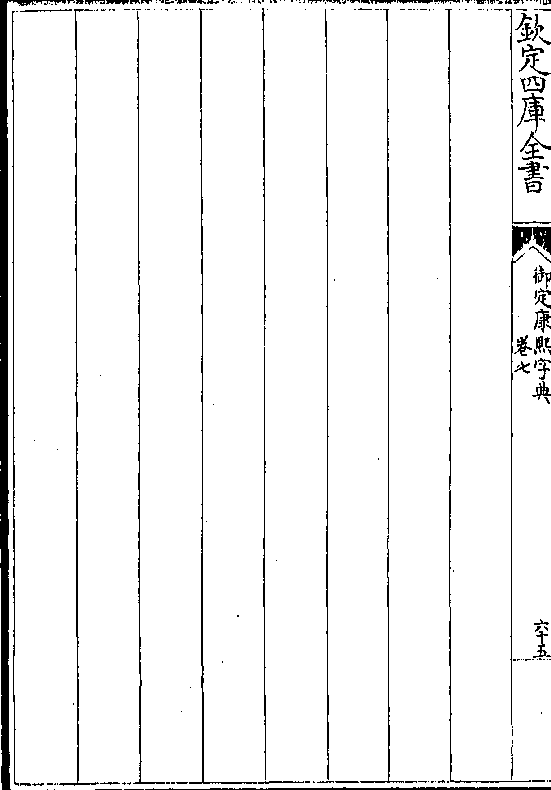 欽定四庫全書
御定康熙字典
卷七
六十五